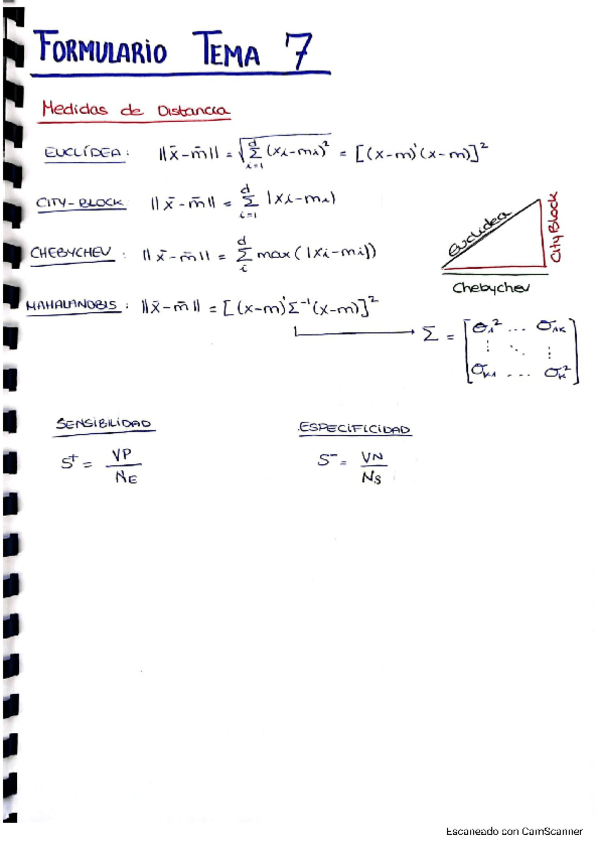 FORMULARIO TEMA 7
Medidas de Distancia
EUCLÍDEA: ||x̄-m̄|| = √(Σ_{i=1}^{d} (xi-mi)²) = [(x-m)'(x-m)]²
CITY-BLOCK: ||x̄-m̄|| = Σ_{i=1}^{d} |xi-mi|
CHEBYCHEV: ||x̄-m̄|| = Σ_{i}^{d} max(|xi-mi|)
Euclidea
City Block
Chebychev
MAHALANOBIS: ||x̄-m̄|| = [(x-m)'Σ⁻¹(x-m)]²
Σ = [σ₁² ... σ₁ₖ
⋮ ⋱ ⋮
σₖ₁ ... σₖ²]
SENSIBILIDAD
S⁺ = VP / NE
ESPECIFICIDAD
S⁻ = VN / NS
Escaneado con CamScanner